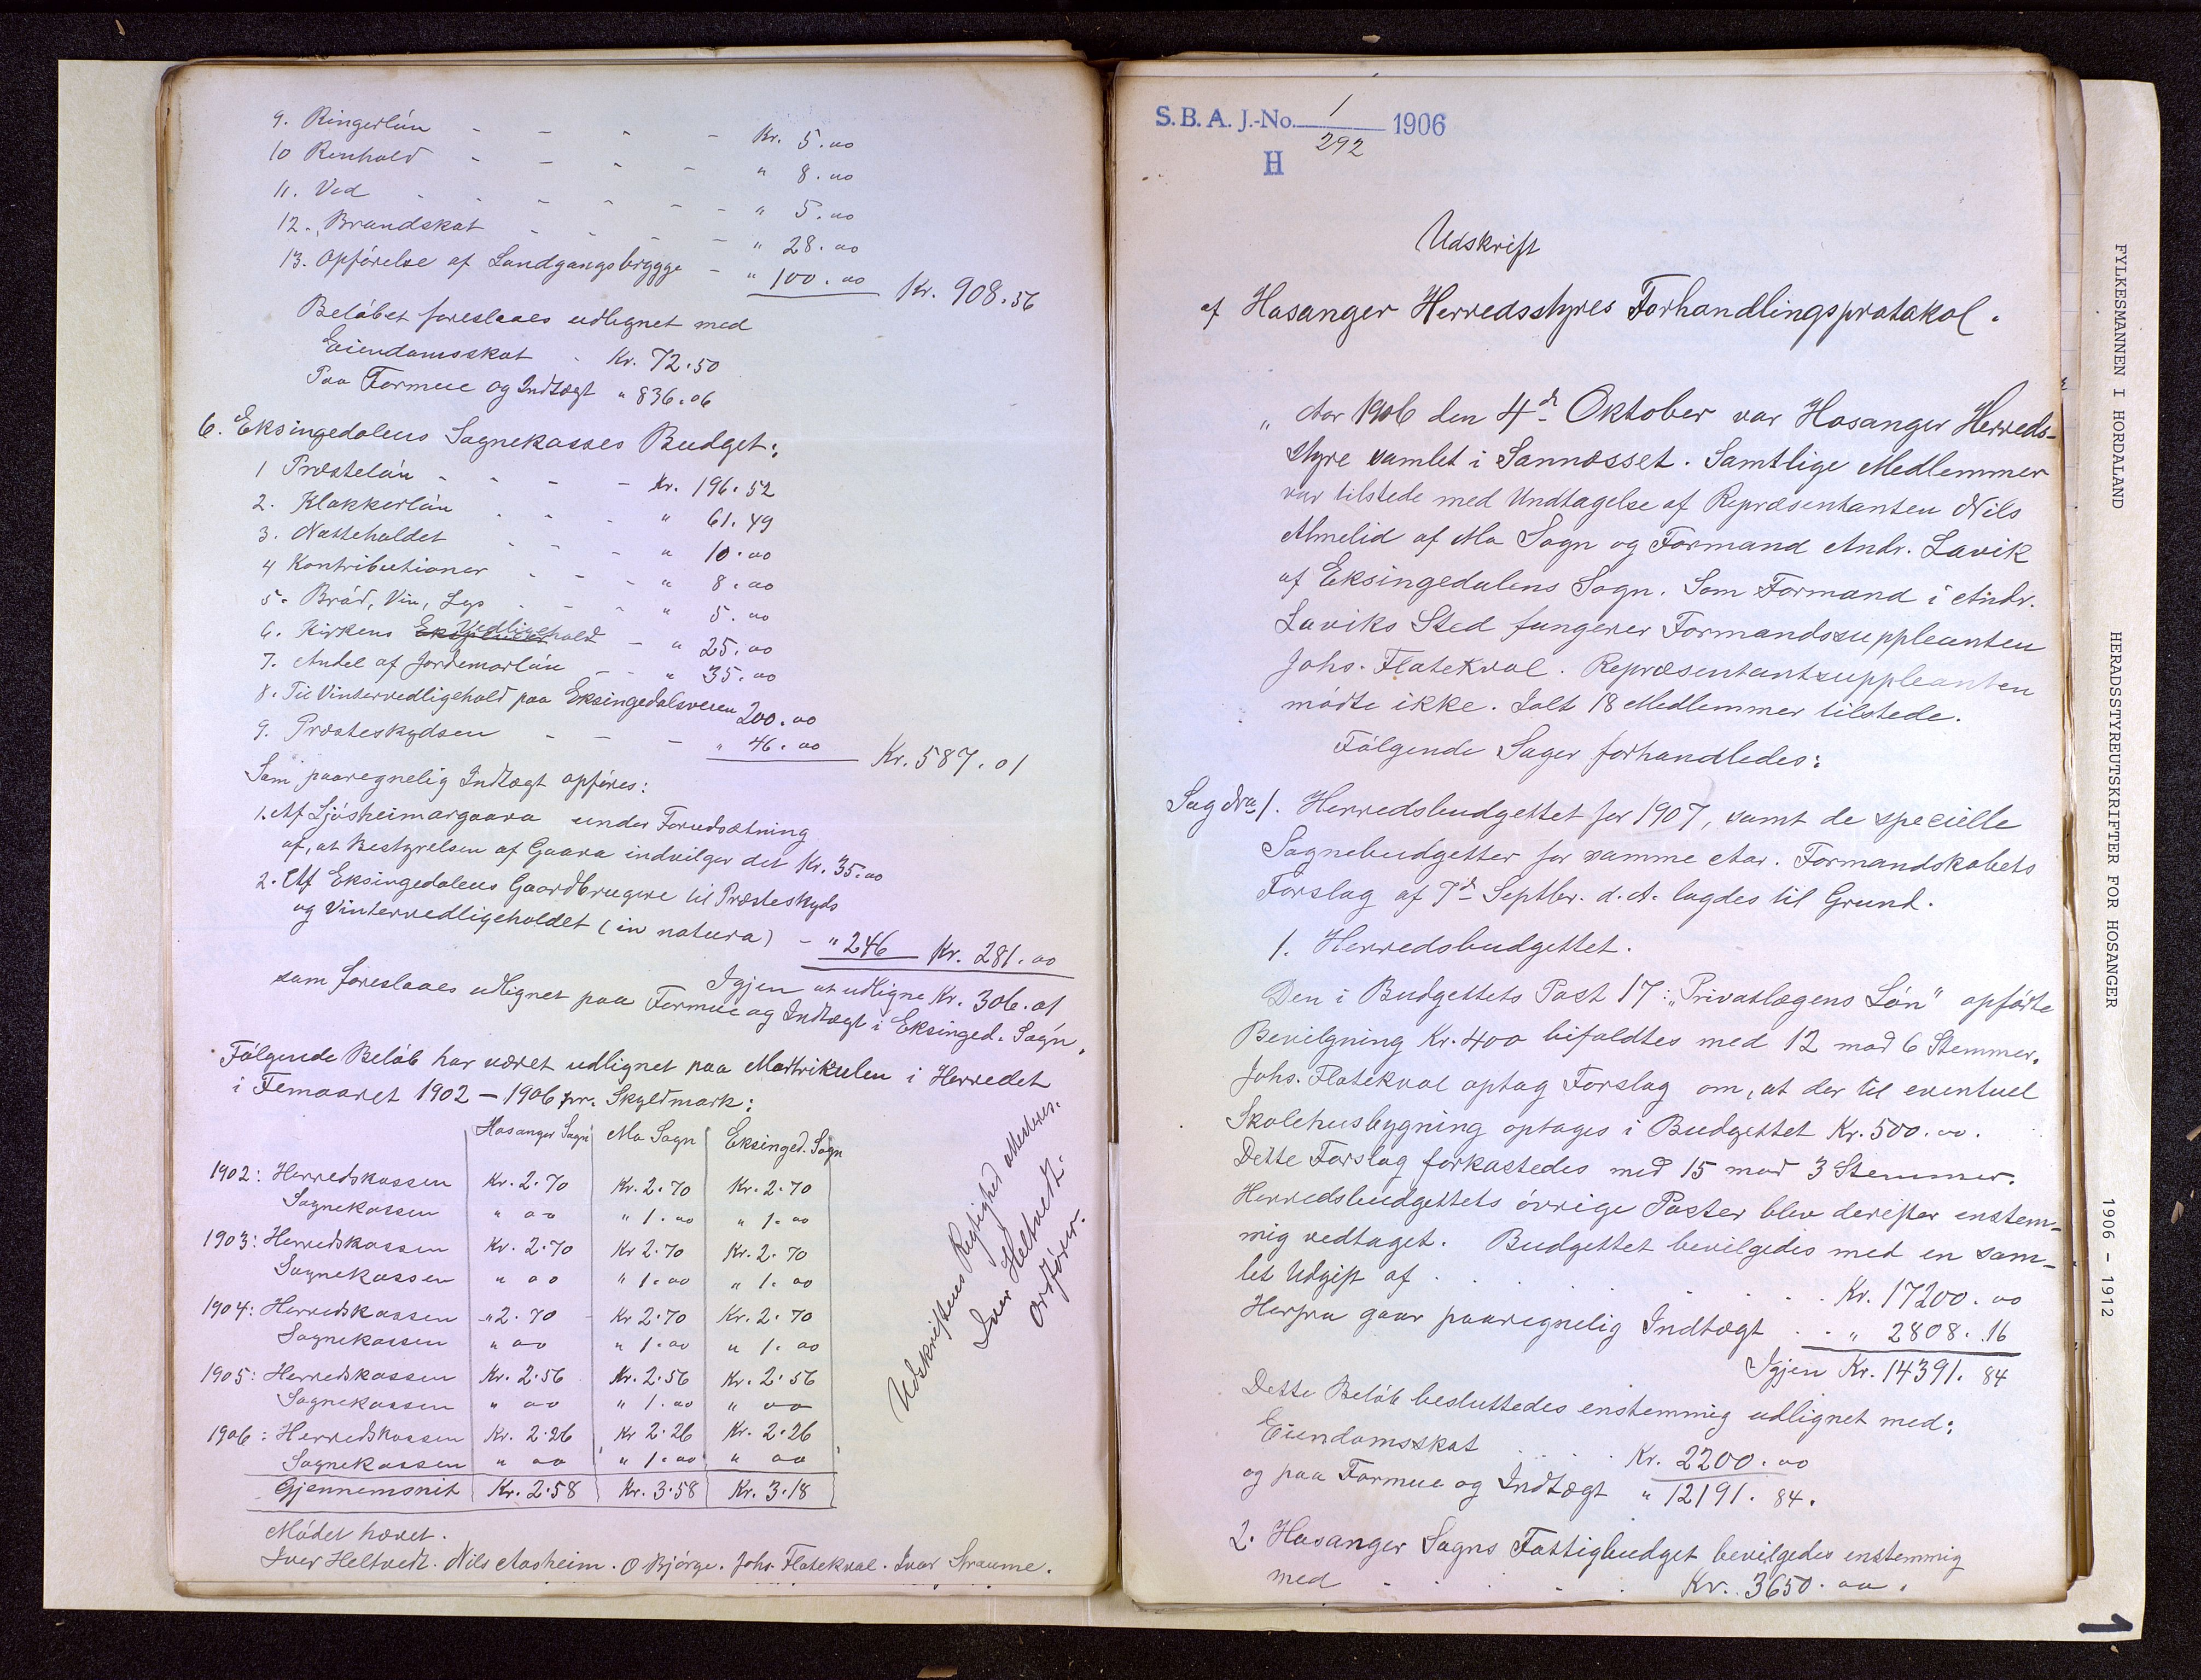 9. Ringerlún - - - - Kr. 5.00
10 Renhold - - - - " 8.00
11. Ved - - - - - " 5.00
12. Brandskat - - - - " 28.00
13. Opførelse af Landgangsbrygge - " 100.00 Kr. 908.56
Beløbet foreslaaes udlignet med
Eiendomsskat - Kr. 72.50
Paa Formue og Indtægt " 836.06
6. Eksingedalens Sognekasses Budget:
1 Præsteløn - - - - Kr. 196.52
2. Klokkerløn - - - " 61.49
3. Natteholdet - - - " 10.00
4 Kontributioner - - - " 8.00
5. Brød, Vin, Lys - - - " 5.00
6. Kirkens Vedligehold - " 25.00
7. Andel af Jordemorløn - - " 35.00
8. Til Vintervedligehold paa Eksingedalsveien 200.00
9. Præsteskydsen - - - " 46.00 Kr. 587.01
Som paaregnelig Indtægt opføres:
1. Af Ljösheimargaava under Forudsætning
af, at Bestyrelsen af Gaava indvilger det Kr. 35.00
2. Af Eksingedalens Gaardbrugere til Præsteskyds
og Vintervedligeholdet (in natura) - " 246 Kr. 281.00
Igjen at udligne Kr. 306.01
som foreslaaes udlignet paa Formue og Indtægt i Eksinged. Sogn.
Følgende Beløb har været udlignet paa Matrikulen i Herredet
i Femaaret 1902 – 1906 pr. Skyldmark:
Hosanger Sogn Mo Sogn Eksinged. Sogn
1902: Herredskassen Kr. 2.70 Kr. 2.70 Kr. 2.70
Sognekassen " 00 " 1.00 " 1.00
1903: Herredskassen Kr. 2.70 Kr 2.70 Kr. 2.70
Sognekassen " 00 " 1.00 " 1.00
1904: Herredskassen " 2.70 Kr 2.70 Kr. 2.70
Sognekassen " 00 " 1.00 " 1.00
1905: Herredskassen Kr. 2.56 Kr. 2.56 Kr. 2.56
Sognekassen " 00 " 1.00 " 00
1906: Herredskassen Kr. 2.26 Kr 2.26 Kr. 2.26
Sognekassen " 00 " 1.00 " 00
Gjennemsnit Kr. 2.58 Kr. 3.58 Kr. 3.18
Mødet hævet.
Iver Heltvedt. Nils Aasheim. O Bjørge. Johs. Flatekval. Ivar Straume.
Udskriftens Rigtighed attesteres.
Iver Heltvedt.
Ordfører.
S. B. A. J.-No. 1/292 1906
H
Udskrift
af Hosanger Herredsstyres Forhandlingsprotokol.
" Aar 1906 den 4de Oktober var Hosanger Herreds-
styre samlet i Sannæsset. Samtlige Medlemmer
var tilstede med Undtagelse af Repræsentanten Nils
Almelid af Mo Sogn og Formand Andr. Lavik
af Eksingedalens Sogn. Som Formand i Andr.
Laviks Sted fungerer Formandssuppleanten
Johs. Flatekval. Repræsentantsuppleanten
mødte ikke. Ialt 18 Medlemmer tilstede.
Følgende Sager forhandledes:
Sag No 1. Herredsbudgettet for 1907, samt de specielle
Sognebudgetter for samme Aar. Formandskabets
Forslag af 7de Septbr. d. A. lagdes til Grund.
1. Herredsbudgettet.
Den i Budgettets Post 17: "Privatlægens Løn" opførte
Bevilgning Kr. 400 bifaldtes med 12 mod 6 Stemmer.
Johs. Flatekval optog Forslag om, at der til eventuel
Skolehusbygning optages i Budgettet Kr. 500.00.
Dette Forslag forkastedes med 15 mod 3 Stemmer.
Herredsbudgettets øvrige Poster blev derefter enstem-
mig vedtaget. Budgettet bevilgedes med en sam-
let Udgift af . . . . . . Kr. 17200.00
Herfra gaar paaregnelig Indtægt . . " 2808.16
Igjen Kr. 14391.84
Dette Beløb besluttedes enstemmig udlignet med:
Eiendomsskat . . . . Kr. 2200.00
og paa Formue og Indtægt " 12191.84.
2. Hosanger Sogns Fattigbudget bevilgedes enstemmig
med - . . - . Kr. 3650.00.
FYLKESMANNEN I HORDALAND
HERADSSTYREUTSKRIFTER FOR HOSANGER
1906 – 1912
1